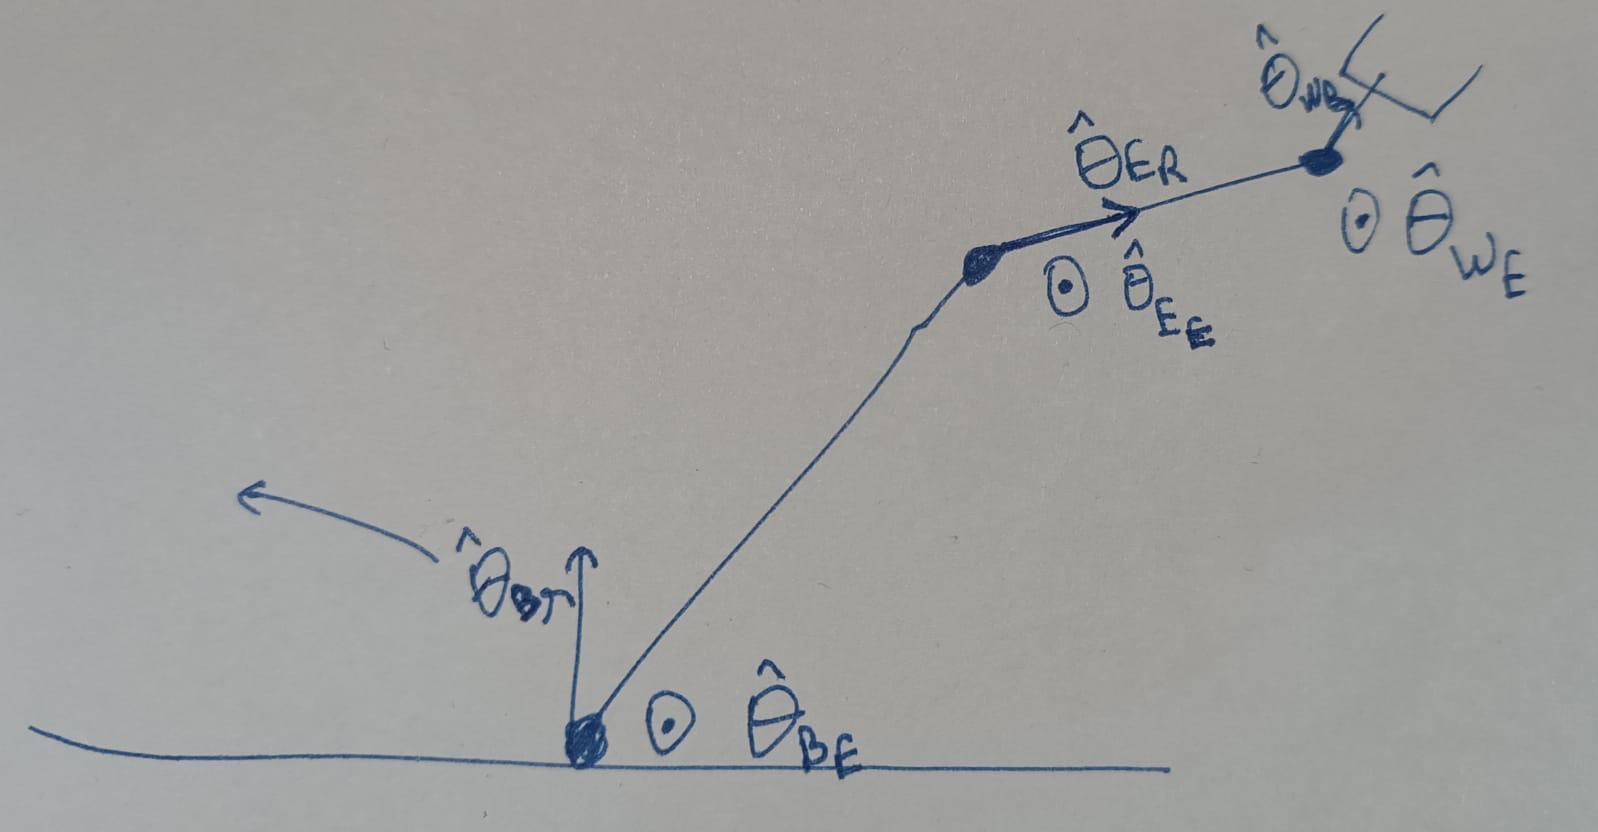 θ̂_WR
θ̂_ER
⊙ θ̂_WE
⊙ θ̂_EE
θ̂_BT
⊙ θ̂_BE